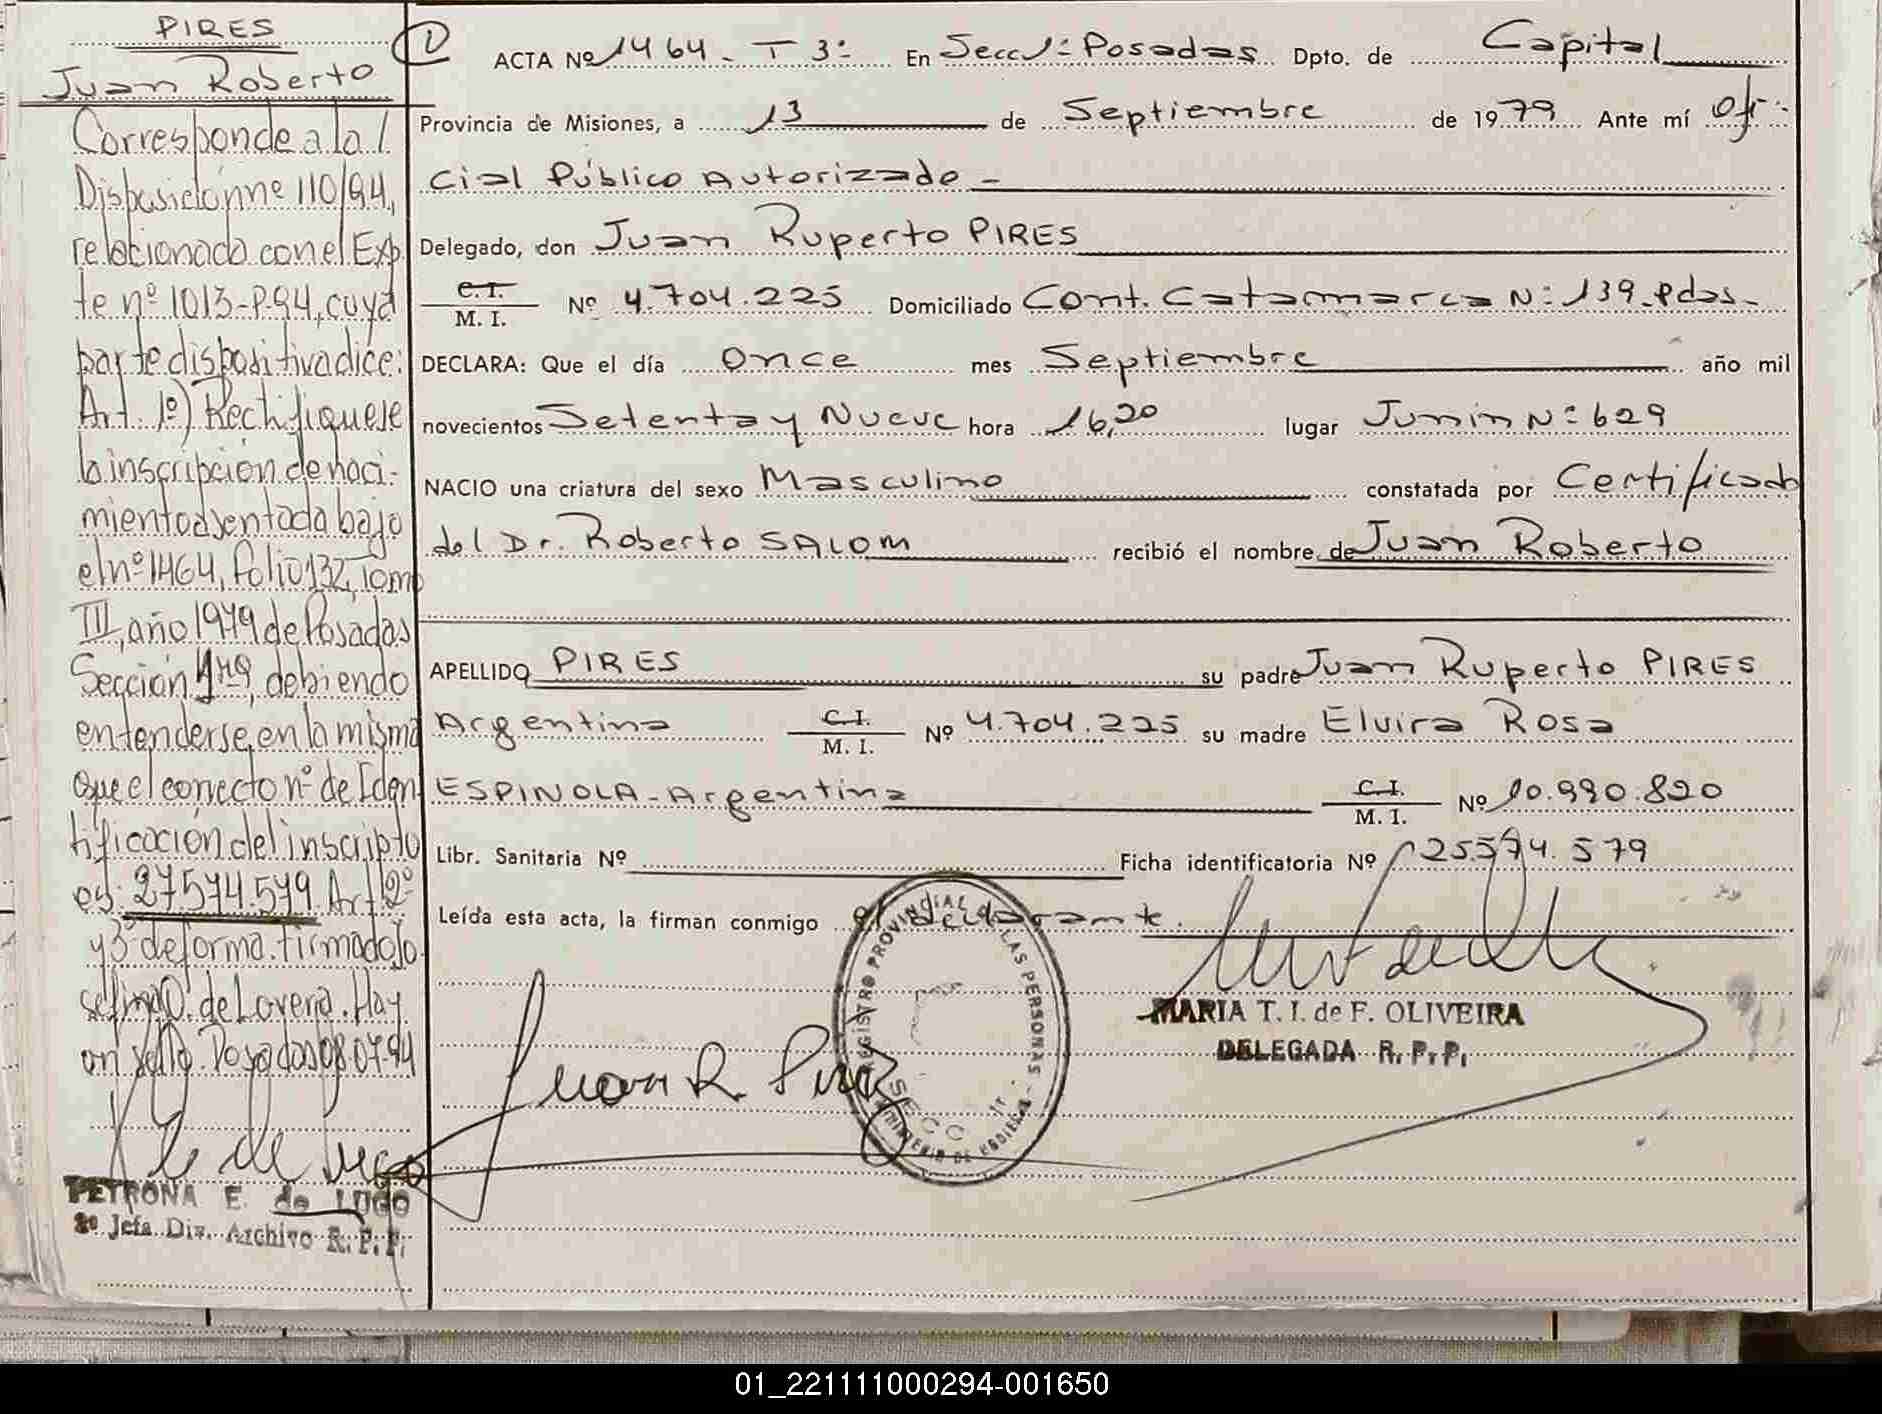 PIRES
Juan Roberto
Corresponde a la
Disposición nº 110/94,
relacionada con el Exp
te nº 1013-P-94, cuya
parte dispositiva dice:
Art. 1º) Rectifíquese
la inscripción de naci-
miento asentada bajo
el nº 1464, folio 132, Tomo
III, año 1979 de Posadas
Sección 1ra, debiendo
entenderse en la misma
que el correcto nº de Iden
tificación del inscripto
es: 27.574.579. Art. 2º
y 3º de forma. Firmado Jo
sefina O. de Lovera. Hay
un sello. Posadas 08.07.94
PETRONA E. de LUGO
2º Jefa Div. Archivo R. P. P.
1
ACTA Nº 1464 - T 3º En Secc 1º Posadas Dpto. de Capital
Provincia de Misiones, a 13 de Septiembre de 1979 Ante mí Ofi-
cial Público Autorizado -
Delegado, don Juan Ruperto PIRES
C.I. / M. I. Nº 4.704.225 Domiciliado Cont. Catamarca Nº 139 - Pdas -
DECLARA: Que el día once mes Septiembre año mil
novecientos Setenta y Nueve hora 16,20 lugar Junin Nº 629
NACIO una criatura del sexo Masculino constatada por Certificado
del Dr. Roberto SALOM recibió el nombre de Juan Roberto
APELLIDO PIRES su padre Juan Ruperto PIRES
Argentina C.I. / M. I. Nº 4.704.225 su madre Elvira Rosa
ESPINOLA - Argentina C.I. / M. I. Nº 10.990.820
Libr. Sanitaria Nº Ficha identificatoria Nº 25.574.579
Leída esta acta, la firman conmigo el declarante.
REGISTRO PROVINCIAL DE LAS PERSONAS
SECC 1r.
MINISTERIO DE GOBIERNO
Juan R. Pires
MARIA T. I. de F. OLIVEIRA
DELEGADA R. P. P.
01_221111000294-001650